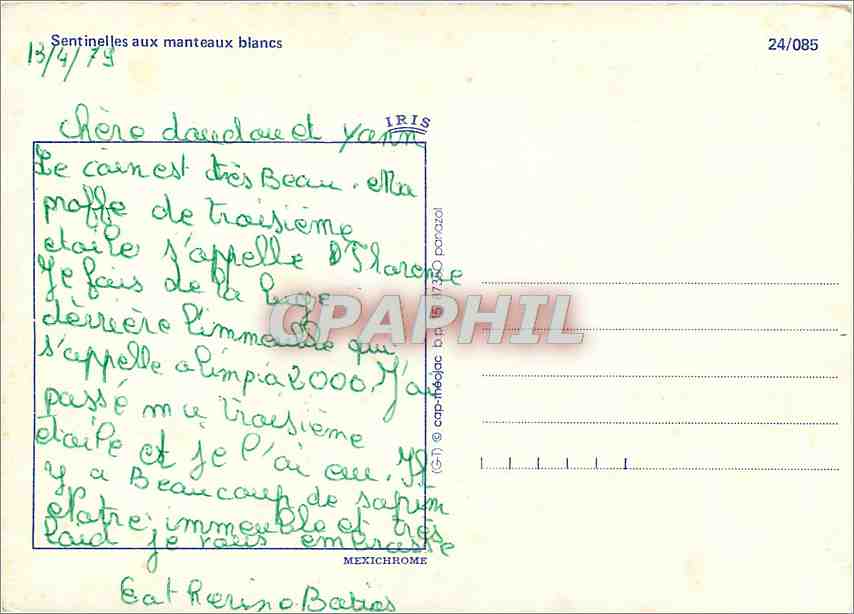 Sentinelles aux manteaux blancs
24/085
13/4/79
IRIS
chère doudou et Yann
Le coin est très Beau. Ma
proffe de troisième
etoile s'appelle Florence
Je fais de la luge
dèrrière l'immeuble qui
s'appelle olimpia 2000. J'ai
passé ma troisième
étoile et je l'ai eu. Il
y a Beaucoup de sapin
Notre immeuble et très
laid je vous embrasse
Catherine
MEXICHROME
(G-T) © cap-théojac b.p. 15 87350 panazol
CPAPHIL